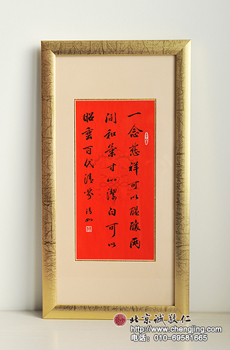 一念慈祥可以醖釀两
间和气寸心潔白可以
昭垂百代清芬
北京诚敬仁
http://www.chengjing.com
电话：010-69581665